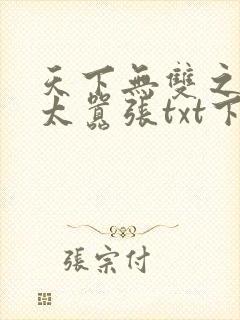 天下無雙之
太囂張txt下
張宗付